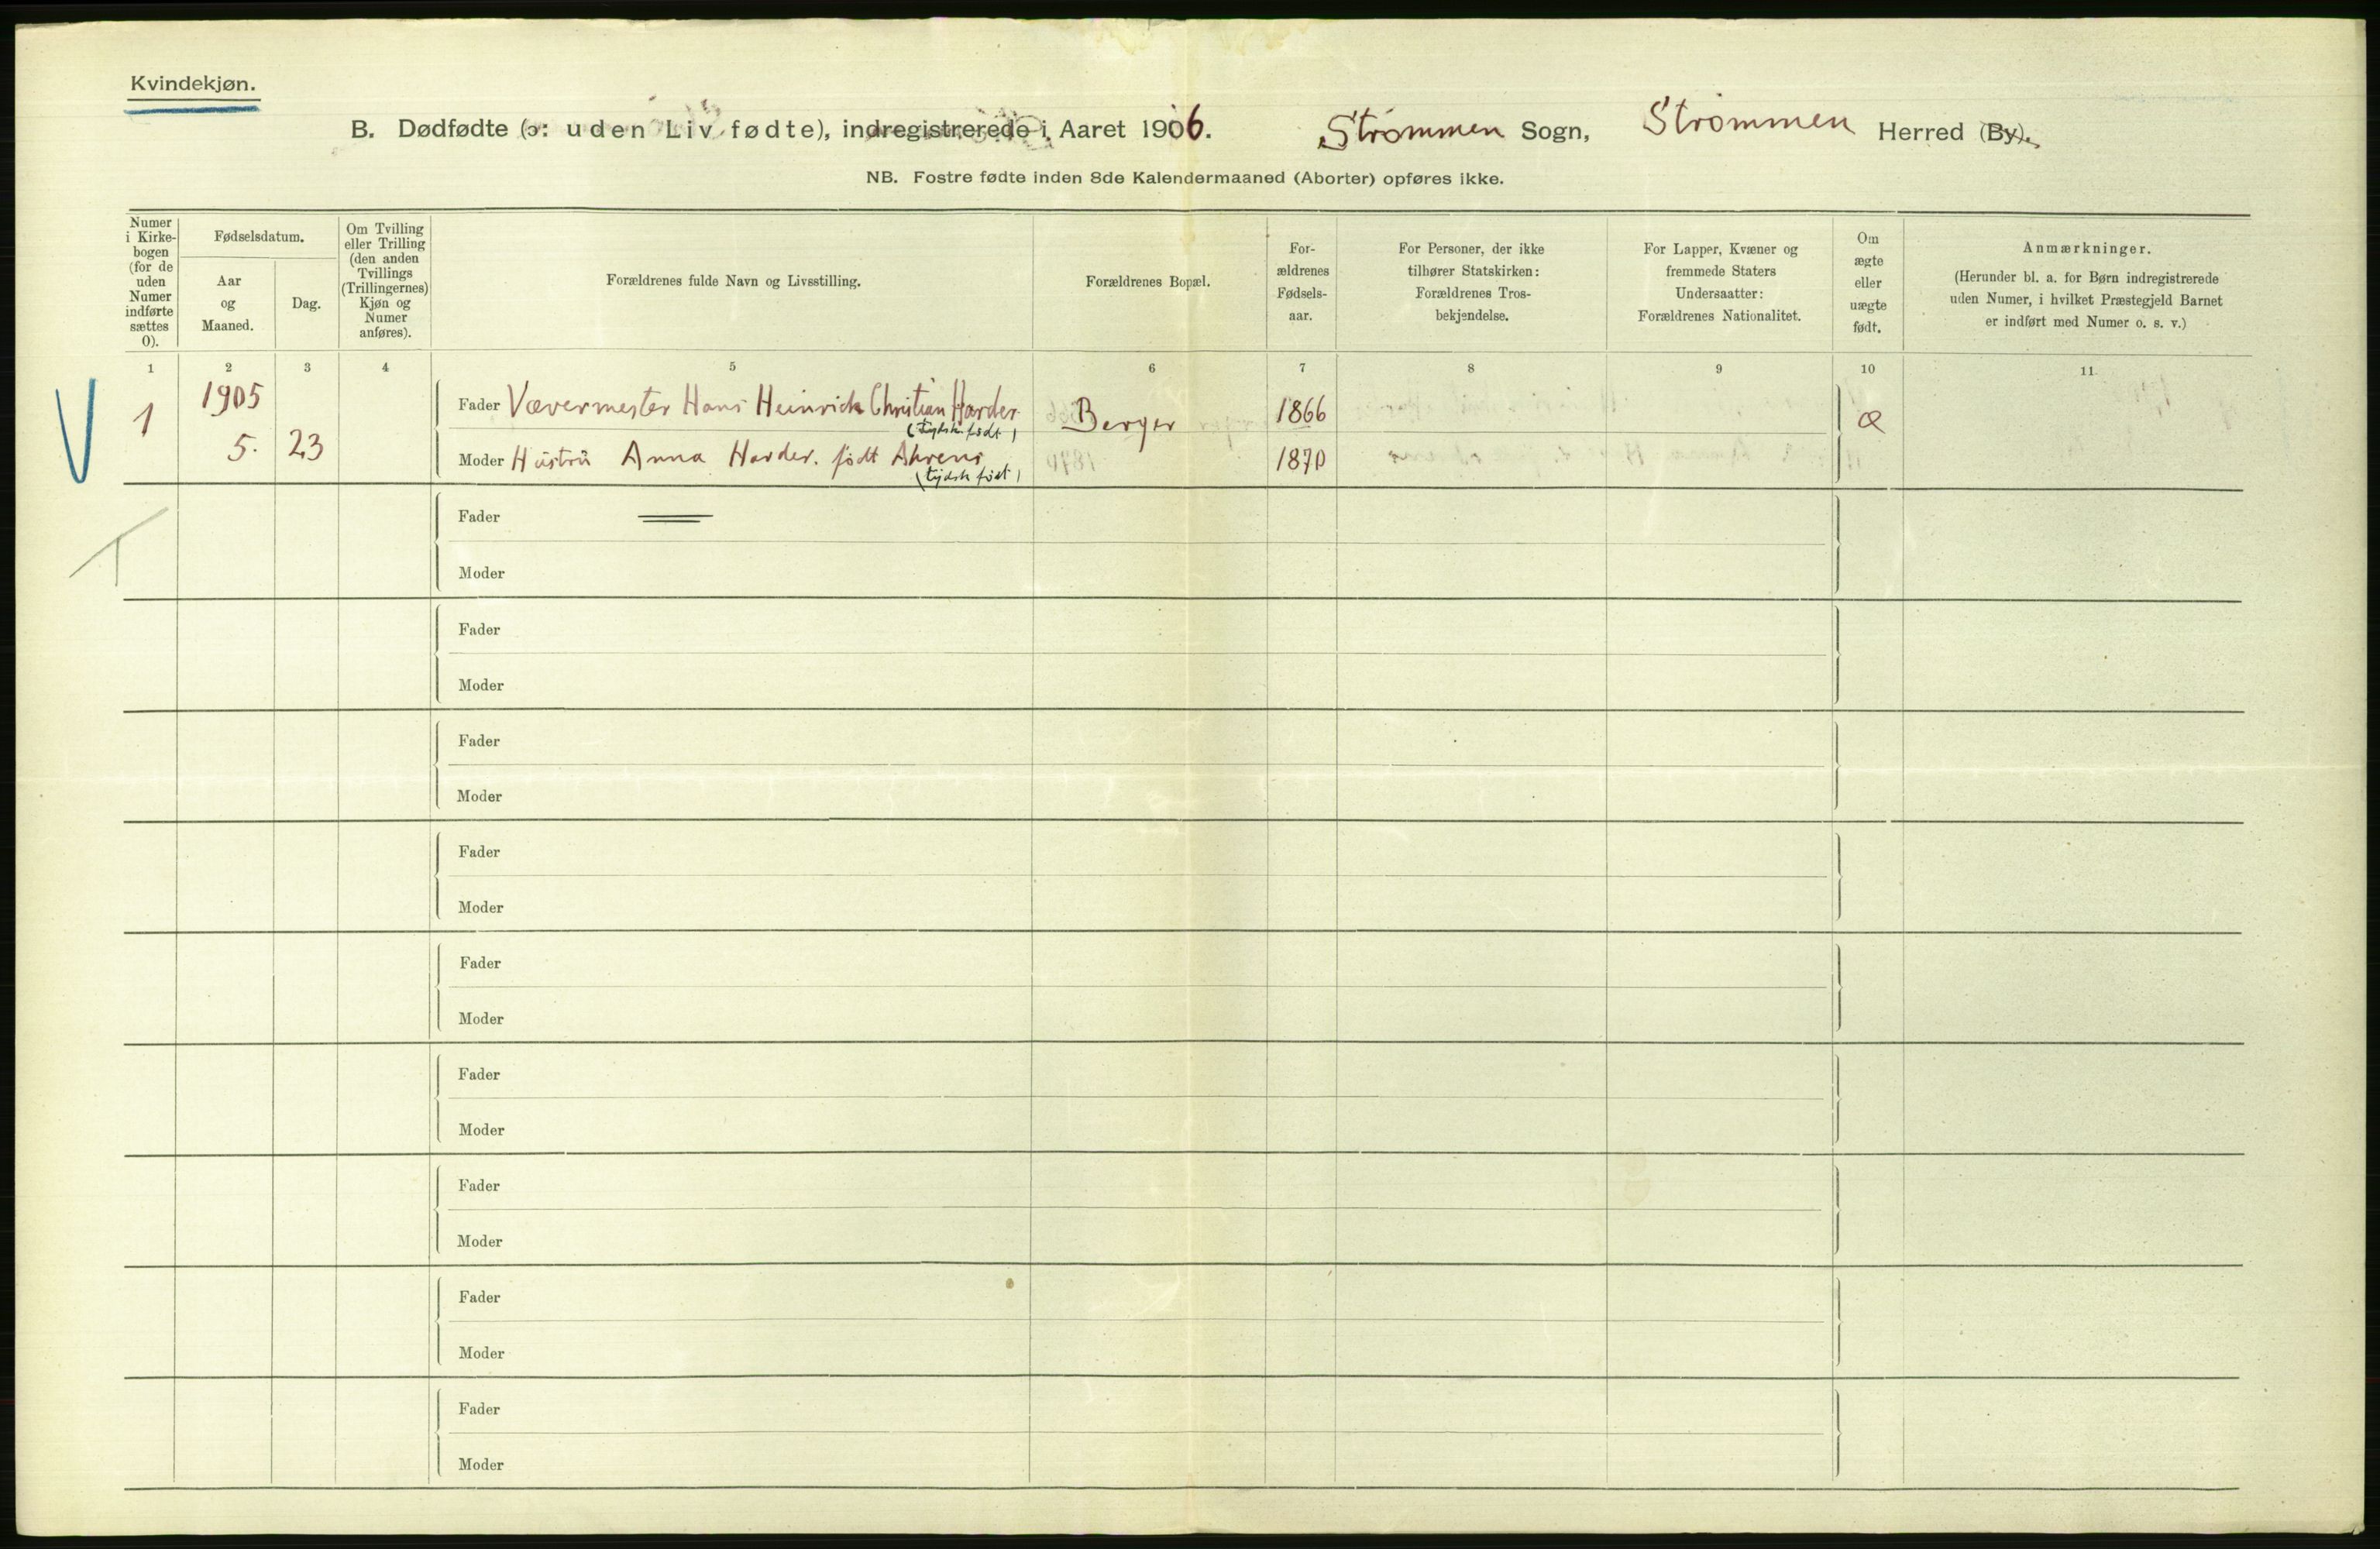 Kvindekjøn.
B. Dødfødte (ɔ: uden Liv fødte), indregistrerede i Aaret 1906. Strømmen Sogn, Strømmen Herred (By).
NB. Fostre fødte inden 8de Kalendermaaned (Aborter) opføres ikke.
Numer i Kirke-bogen (for de uden Numer indførte sættes 0).
Fødselsdatum.
Aar og Maaned.
Dag.
Om Tvilling eller Trilling (den anden Tvillings (Trillingernes) Kjøn og Numer anføres).
Forældrenes fulde Navn og Livsstilling.
Forældrenes Bopæl.
For-ældrenes Fødsels-aar.
For Personer, der ikke tilhører Statskirken: Forældrenes Tros-bekjendelse.
For Lapper, Kvæner og fremmede Staters Undersaatter: Forældrenes Nationalitet.
Om ægte eller uægte født.
Anmærkninger.
(Herunder bl. a. for Børn indregistrerede uden Numer, i hvilket Præstegjeld Barnet er indført med Numer o. s. v.)
1 2 3 4 5 6 7 8 9 10 11
1 1905 5. 23
Fader Vævermester Hans Heinrich Christian Harder Berger 1866 Æ
(tydsk født)
Moder Hustru Anna Harder. født Ahrens 1870
(tydsk født)
Fader
Moder
Fader
Moder
Fader
Moder
Fader
Moder
Fader
Moder
Fader
Moder
Fader
Moder
Fader
Moder
Fader
Moder